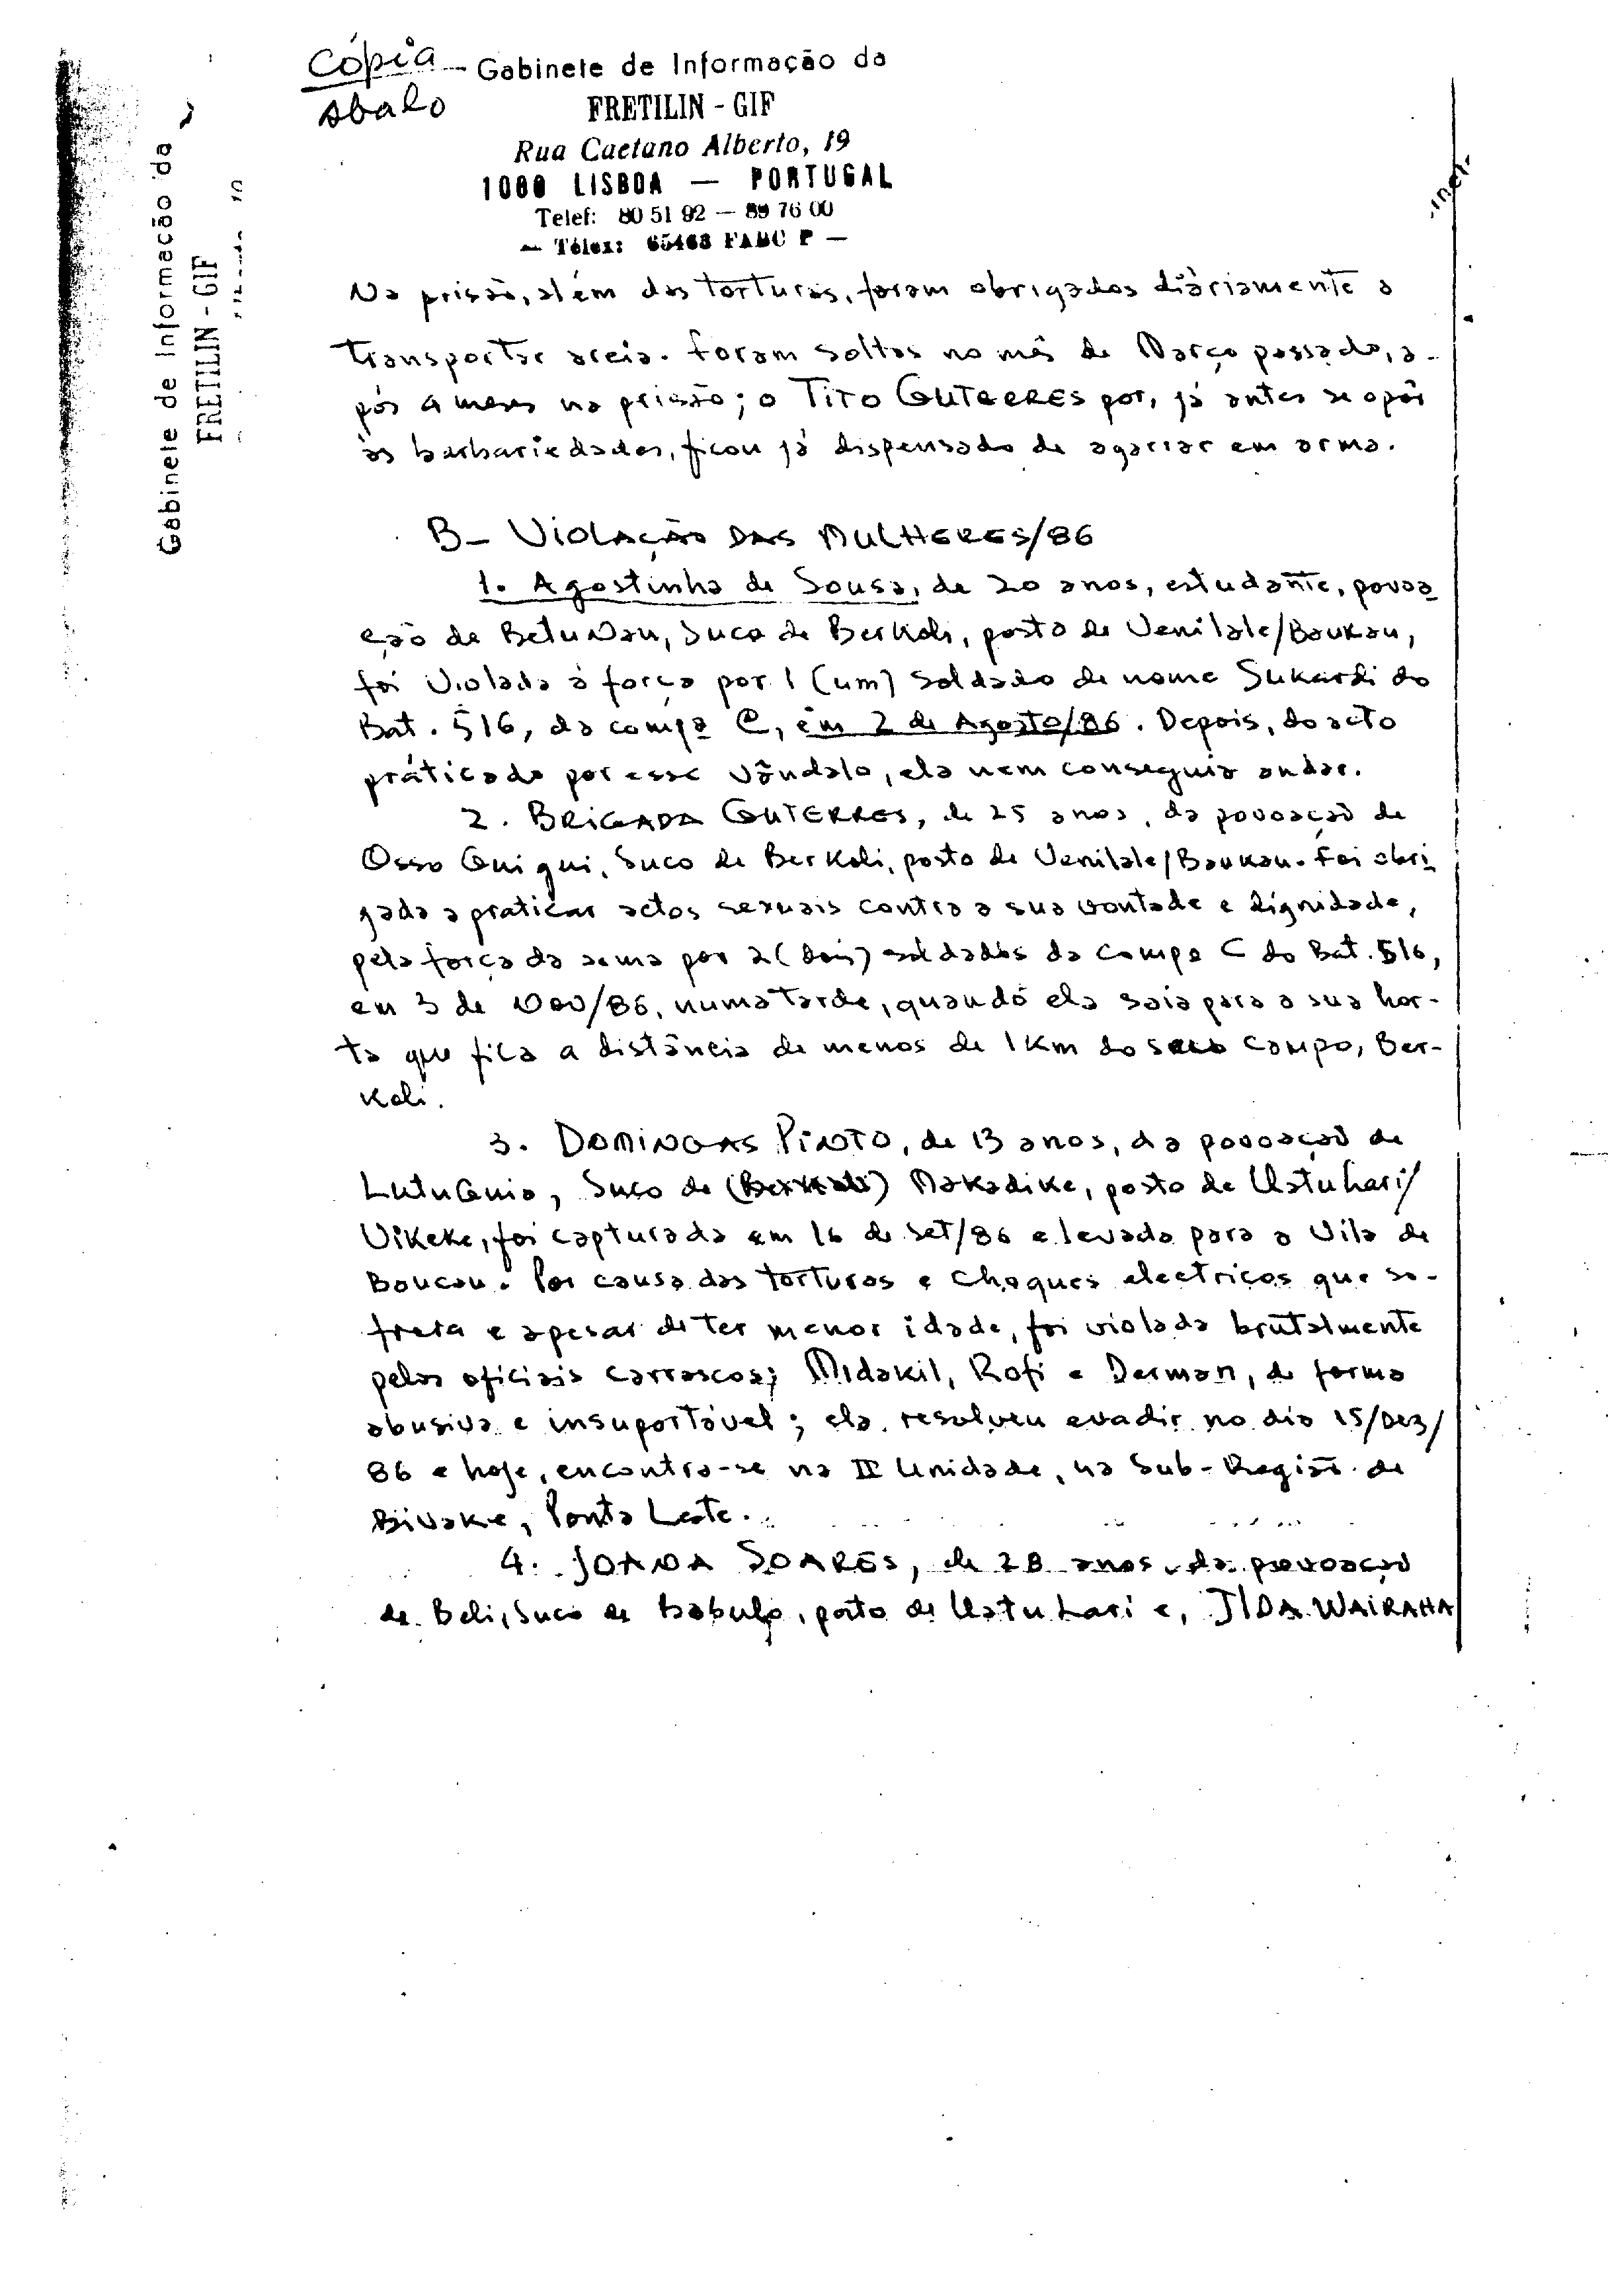 Cópia — Gabinete de Informação da
Abalo FRETILIN - GIF
Rua Caetano Alberto, 19
1000 LISBOA — PORTUGAL
Telef: 80 51 92 — 89 76 00
— Télex: 65463 FABC P —
Gabinete de Informação da
FRETILIN - GIF
Na prisão, além das torturas, foram obrigados diàriamente a
transportar areia. Foram soltos no mês de Março passado, a-
pós 4 meses na prisão; o TITO GUTERRES por, já antes se opôr
às barbariedades, ficou já dispensado de agarrar em arma.
B- VIOLAÇÃO DAS MULHERES/86
1. Agostinha de Sousa, de 20 anos, estudante, povoa
ção de BetuNau, Suco de Berkoli, posto de Venilale/Baukau,
foi violada à força por 1 (um) soldado de nome Sukardi do
Bat. 516, da compª C, em 2 de Agosto/86. Depois, do acto
práticado por esse vândalo, ela nem conseguia andar.
2. BRIGADA GUTERRES, de 25 anos, da povoação de
Osso Guigui, Suco de Berkoli, posto de Venilale/Baukau. Foi obri
gada a praticar actos sexuais contra a sua vontade e dignidade,
pela força da arma por 2 (dois) soldados da Compª C do Bat. 516,
em 3 de Nov/86, numa tarde, quando ela saia para a sua hor-
ta que fica a distância de menos de 1 Km do campo, Ber-
koli.
3. DOMINGAS PINTO, de 13 anos, da povoação de
LutuGuia, Suco de (Berkoli) Makadike, posto de Uatuhari/
Vikeke, foi capturada em 16 de Set/86 e levada para a Vila de
Baucau. Por causa das torturas e choques electricos que so-
frera e apesar de ter menor idade, foi violada brutalmente
pelos oficiais carrascos; Midakil, Rofi e Derman, de forma
abusiva e insuportável; ela resolveu evadir no dia 15/Dez/
86 e hoje, encontra-se na II Unidade, na Sub-Região de
Bivake, Ponta Leste.
4. JOANA SOARES, de 28 anos, da provoação
de Beli, Suco de Babulo, posto de Uatuhari e, JLDA WAIRAHA